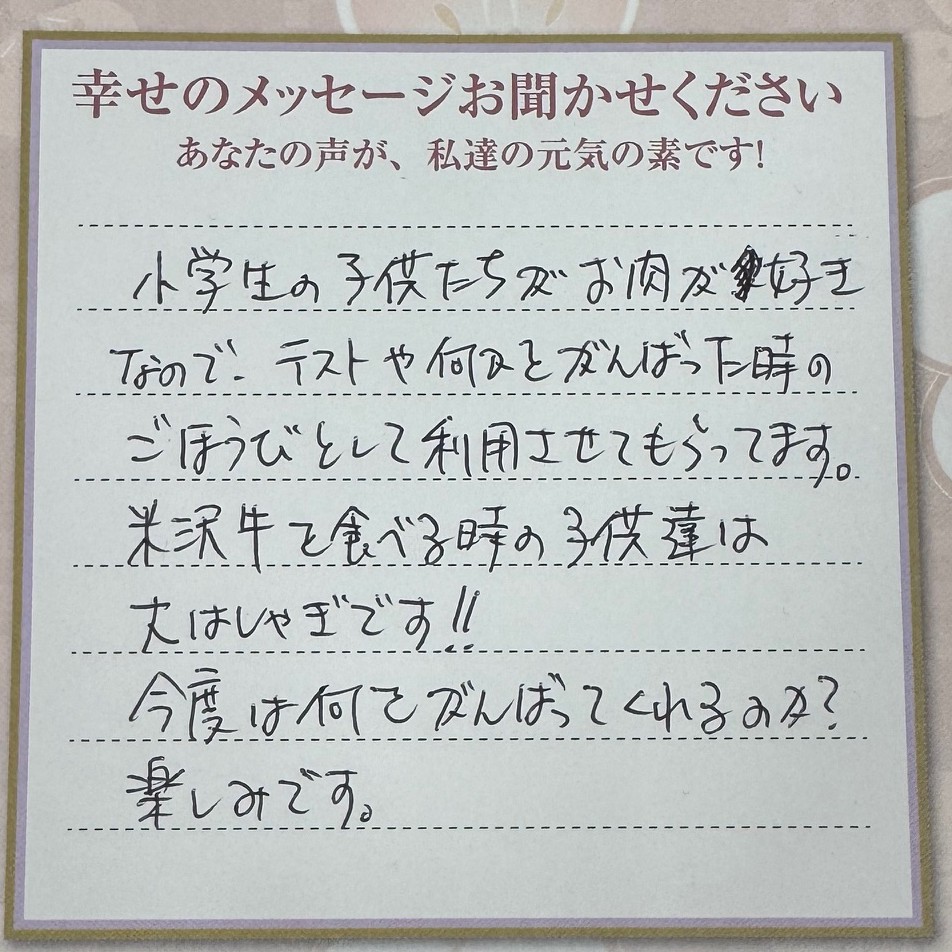 幸せのメッセージお聞かせください
あなたの声が、私達の元気の素です!
小学生の子供たちがお肉が好き
なので、テストや何かとがんばった時の
ごほうびとして利用させてもらってます。
米沢牛を食べる時の子供達は
大はしゃぎです!!
今度は何をがんばってくれるのか?
楽しみです。